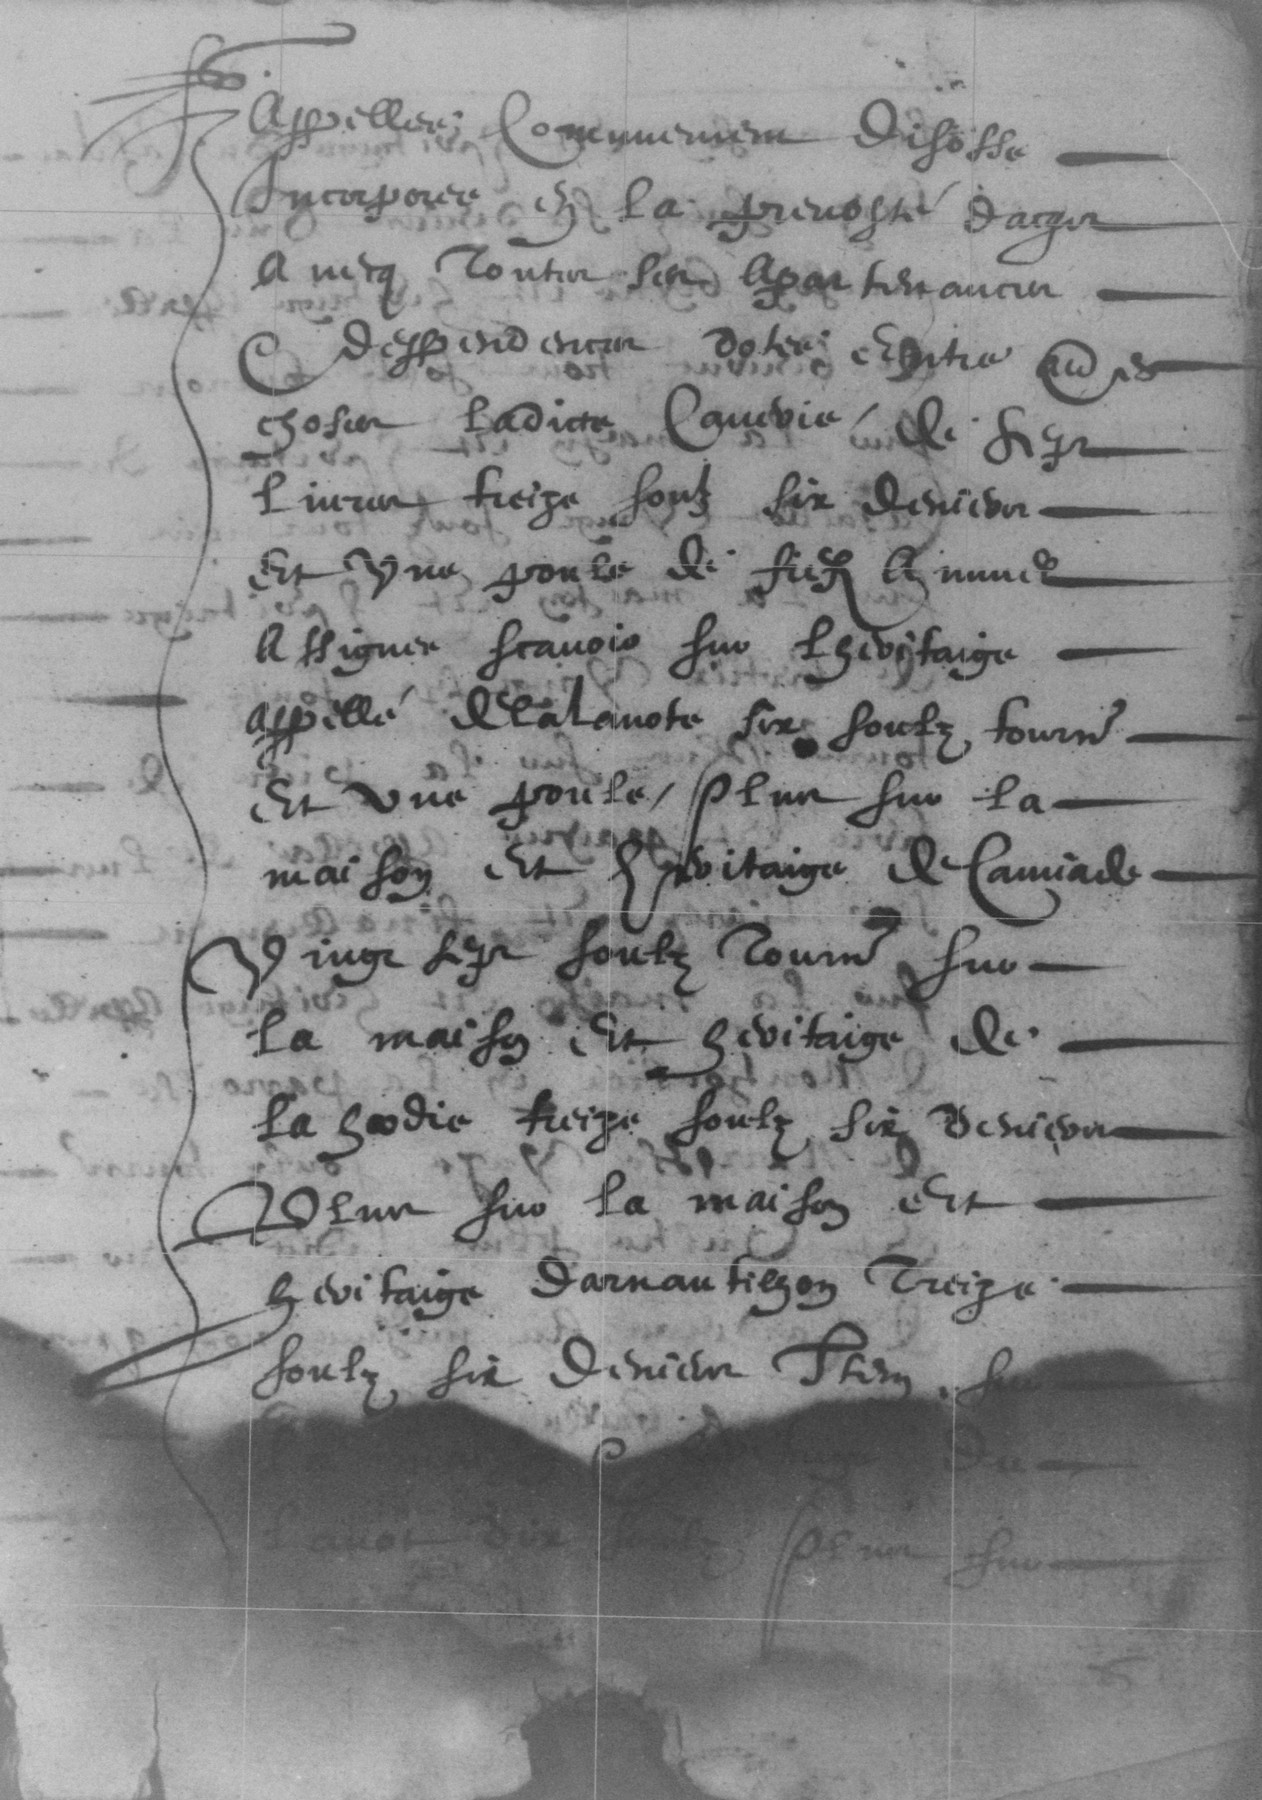 Appellee Communement Disosse
Incorporee en la prevosté dacqz
Avecq Toutes ses Apartenances
Et despendences dotee entre autres
choses ladicte Caverie de sept
livres treize soulz six deniers
Et Une poule de fief Annuel
Assignee scavoir sur lheritaige
appellé delalanote six soulz tourn
Et vne poule / Plus sur la
maison Et heritaige de Camiade
Vingt sept soulz Tourn sur
la maison Et heritaige de
la hordie treize soulz six deniers
Plus sur la maison Et
heritaige darnautilhon Treize
soulz six deniers Item sur
la du
dix soulz Plus sur